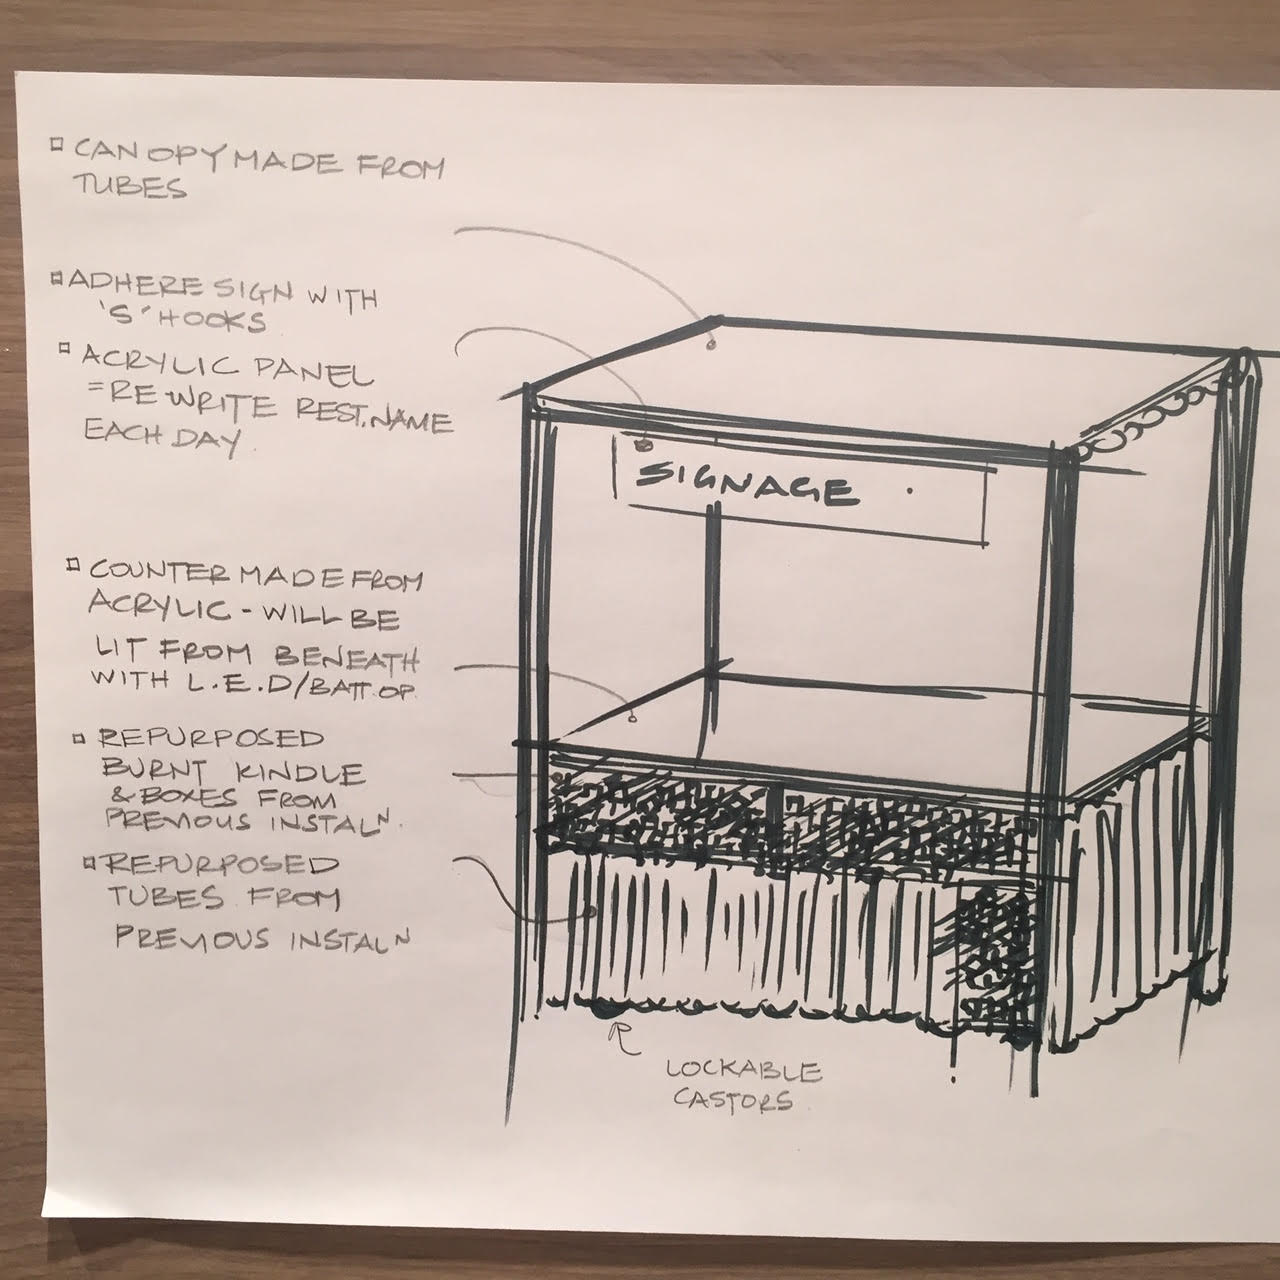 CANOPY MADE FROM
TUBES
ADHERE SIGN WITH
'S' HOOKS
ACRYLIC PANEL
=RE WRITE REST. NAME
EACH DAY
COUNTER MADE FROM
ACRYLIC - WILL BE
LIT FROM BENEATH
WITH L.E.D/BATT.OP.
REPURPOSED
BURNT KINDLE
& BOXES FROM
PREVIOUS INSTALN.
REPURPOSED
TUBES FROM
PREVIOUS INSTALN
SIGNAGE
LOCKABLE
CASTORS